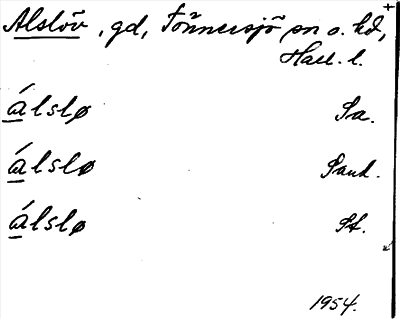 Alslöv, gd, Tönnersjö sn o. hd,
Hall. l.
álslø Sa.
álslø Sand.
álslø St.
1954.